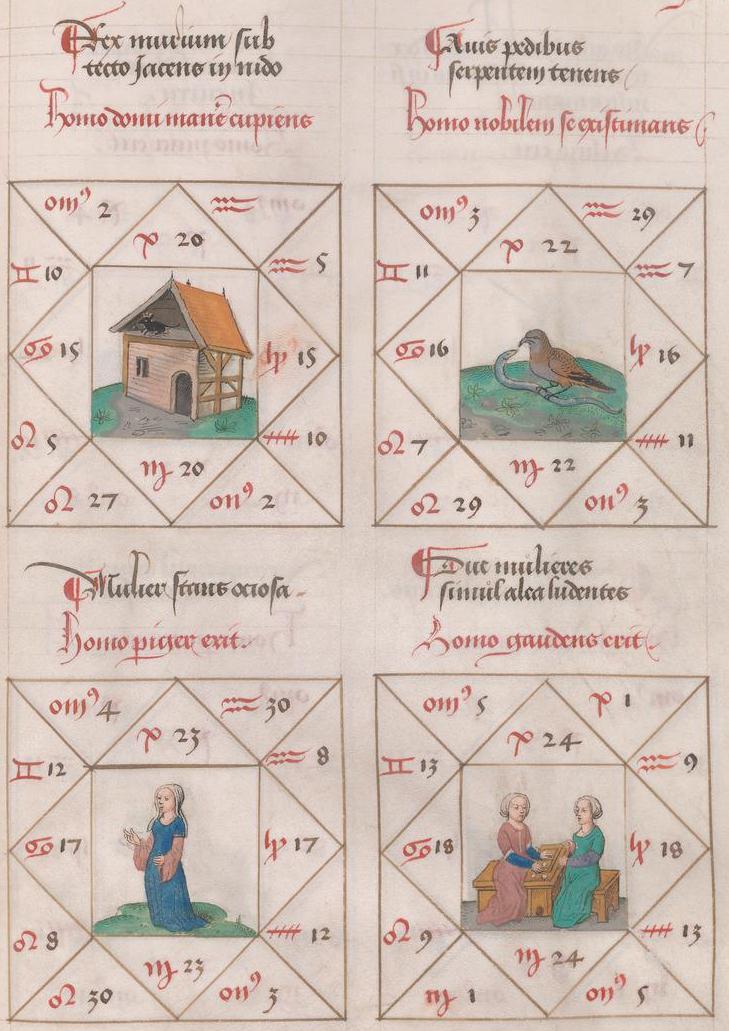 Rex murium sub
tecto Jacens in nido
Homo domi manē cupiens
omꝰ 2 ♒
p 20
♊ 10 ♒ 5
♋ 15 lp 15
♌ 5 10
♍ 20
♌ 27 onꝰ 2
Avis pedibus
serpentem tenens
Homo nobilem se existimans
omꝰ 3 ♒ 29
p 22
♊ 11 ♒ 7
♋ 16 lp 16
♌ 7 11
♍ 22
♌ 29 onꝰ 3
Mulier stans ociosa
Homo piger erit.
omꝰ 4 ♒ 30
p 23
♊ 12 ♒ 8
♋ 17 lp 17
♌ 8 12
♍ 23
♌ 30 onꝰ 3
Due mulieres
simul alea ludentes
Homo gaudens erit
omꝰ 5 p 1
p 24
♊ 13 ♒ 9
♋ 18 lp 18
♌ 9 13
♍ 24
♍ 1 onꝰ 5